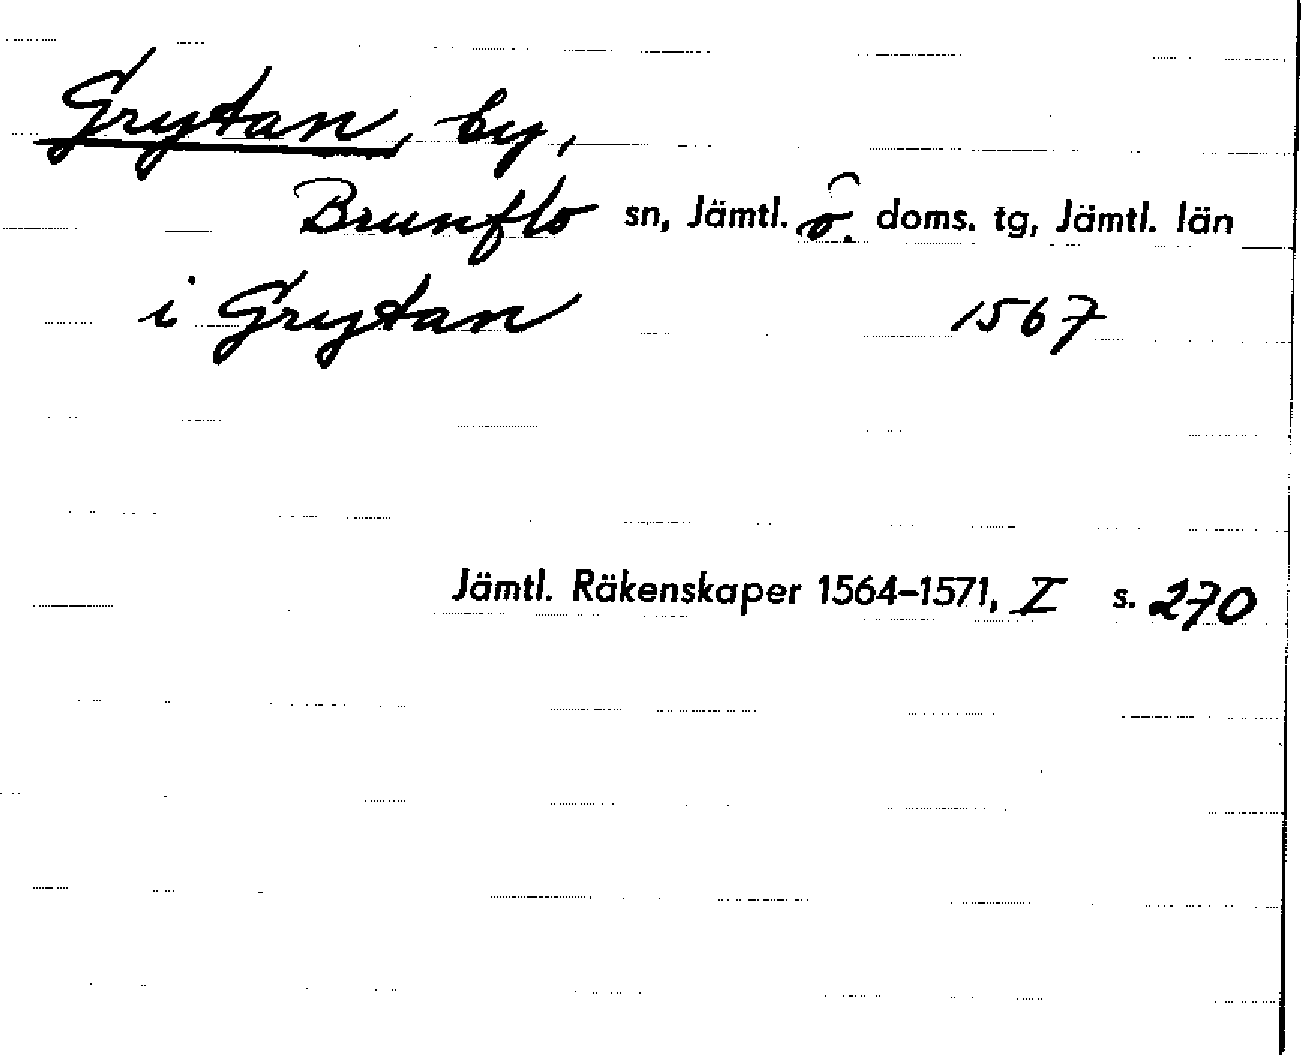 Grytan, by,
Brunflo sn, Jämtl. ö. doms. tg, Jämtl. län
i Grytan 1567
Jämtl. Räkenskaper 1564–1571, I s. 270